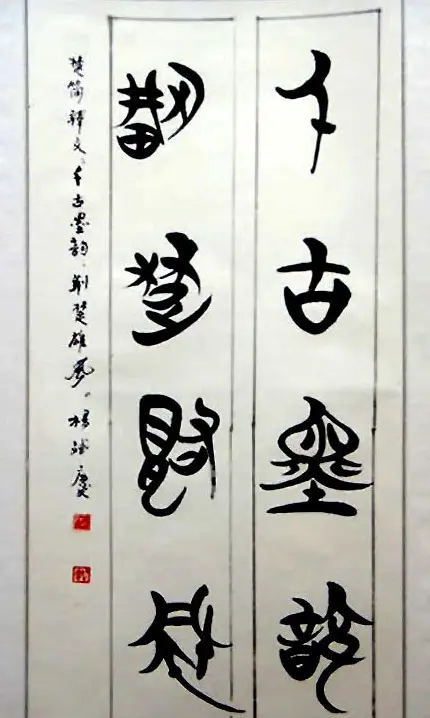 千古墨韵
荆楚雄风
楚简释文、千古墨韵、荆楚雄风。杨